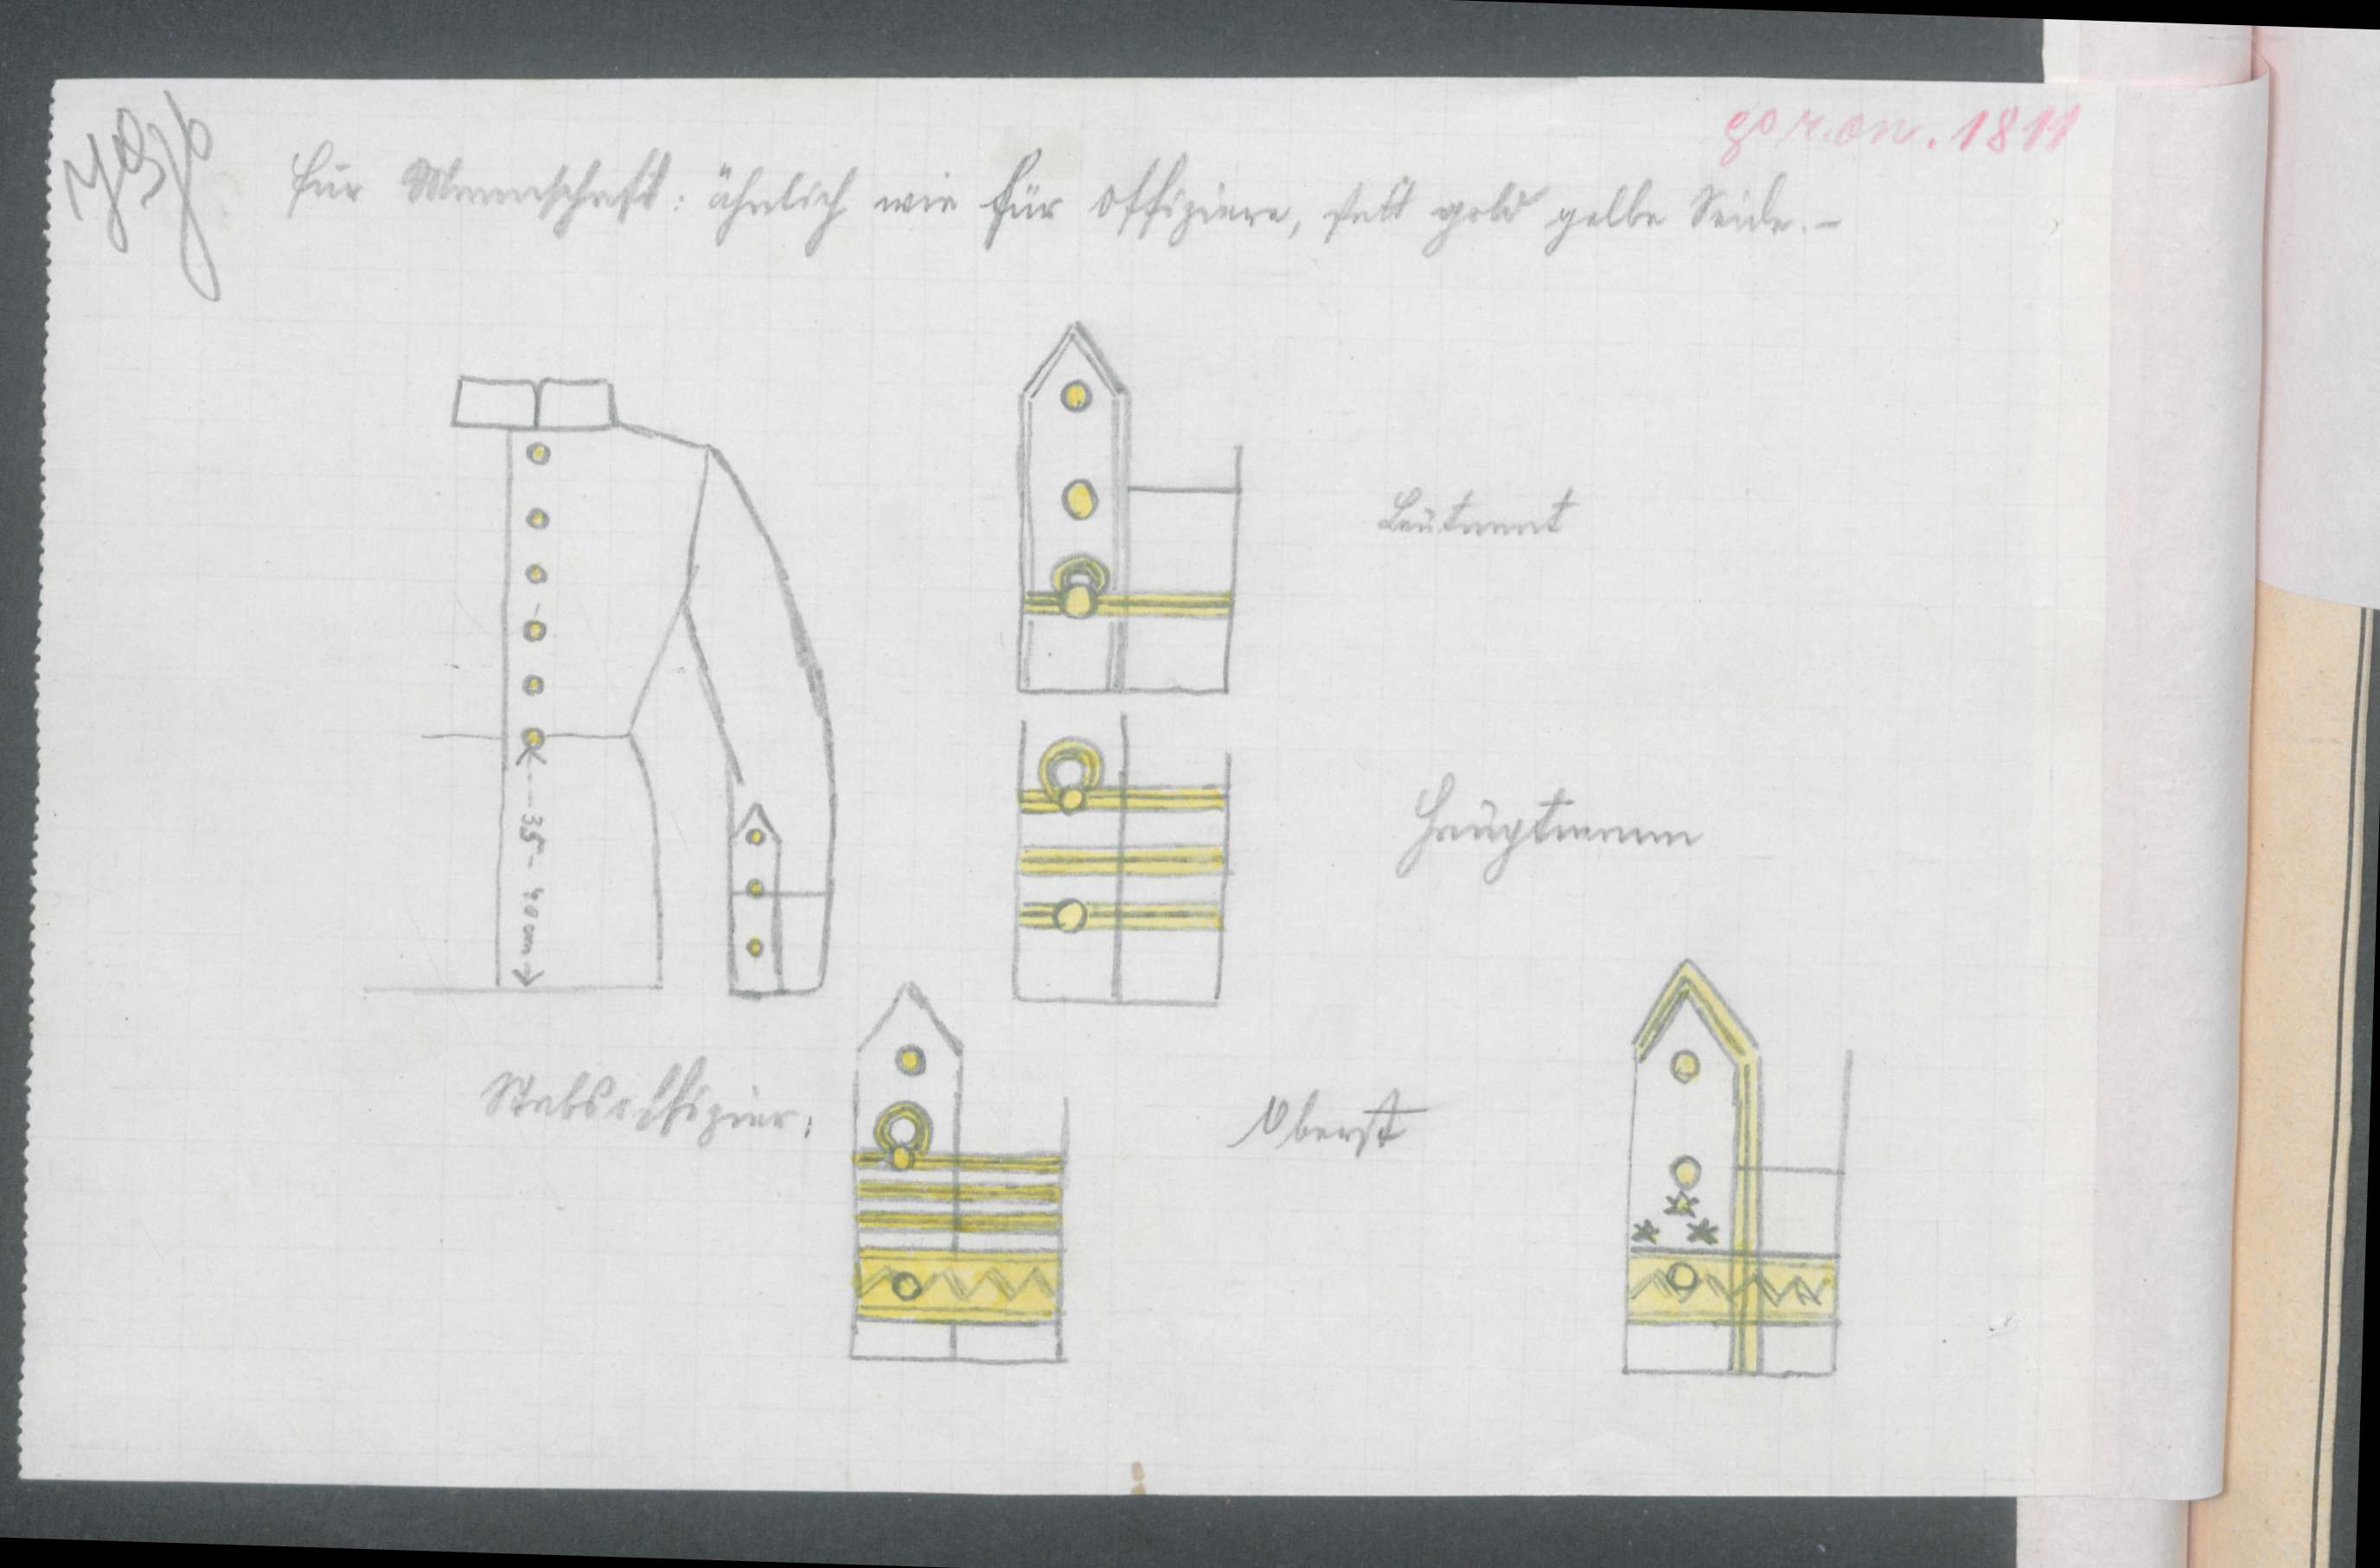 für Mannschaft: ähnlich wie für Offiziere, statt gold gelbe Seide. –
Leutnant
Hauptmann
35 - 40 cm
Stabsoffizier:
Oberst